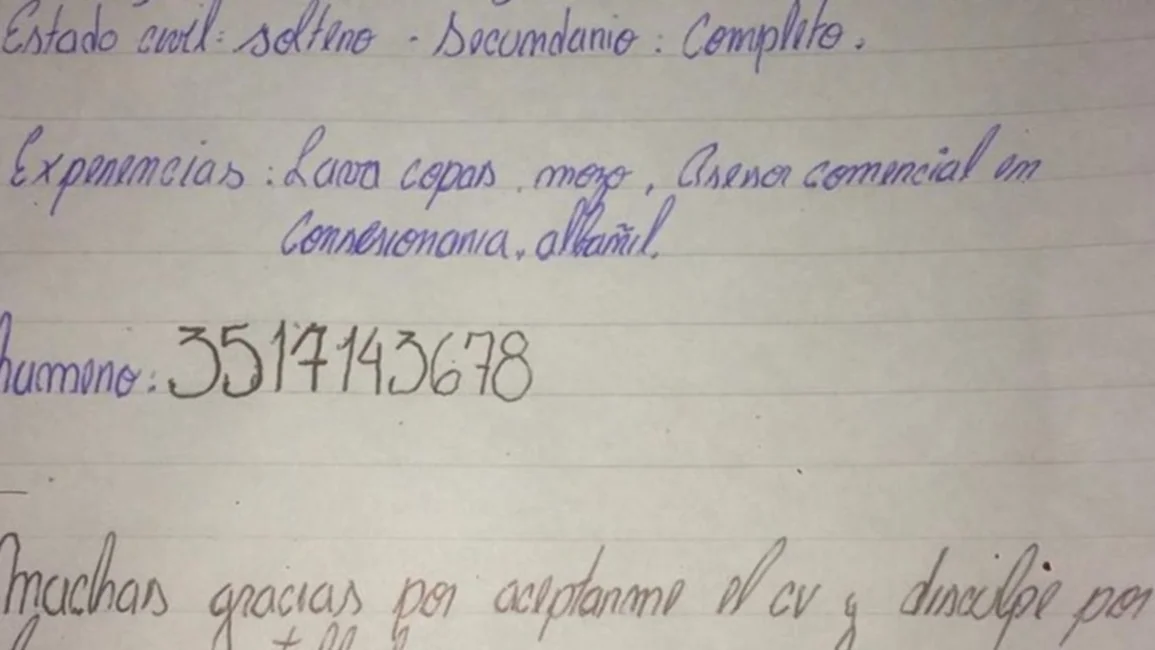 Estado civil: soltero - Secundario: Completo.
Experiencias: Lava copas, mozo, Asesor comercial en
Consesionaria, albañil.
humero: 3517143678
Muchas gracias por aceptarme el cv y disculpe por